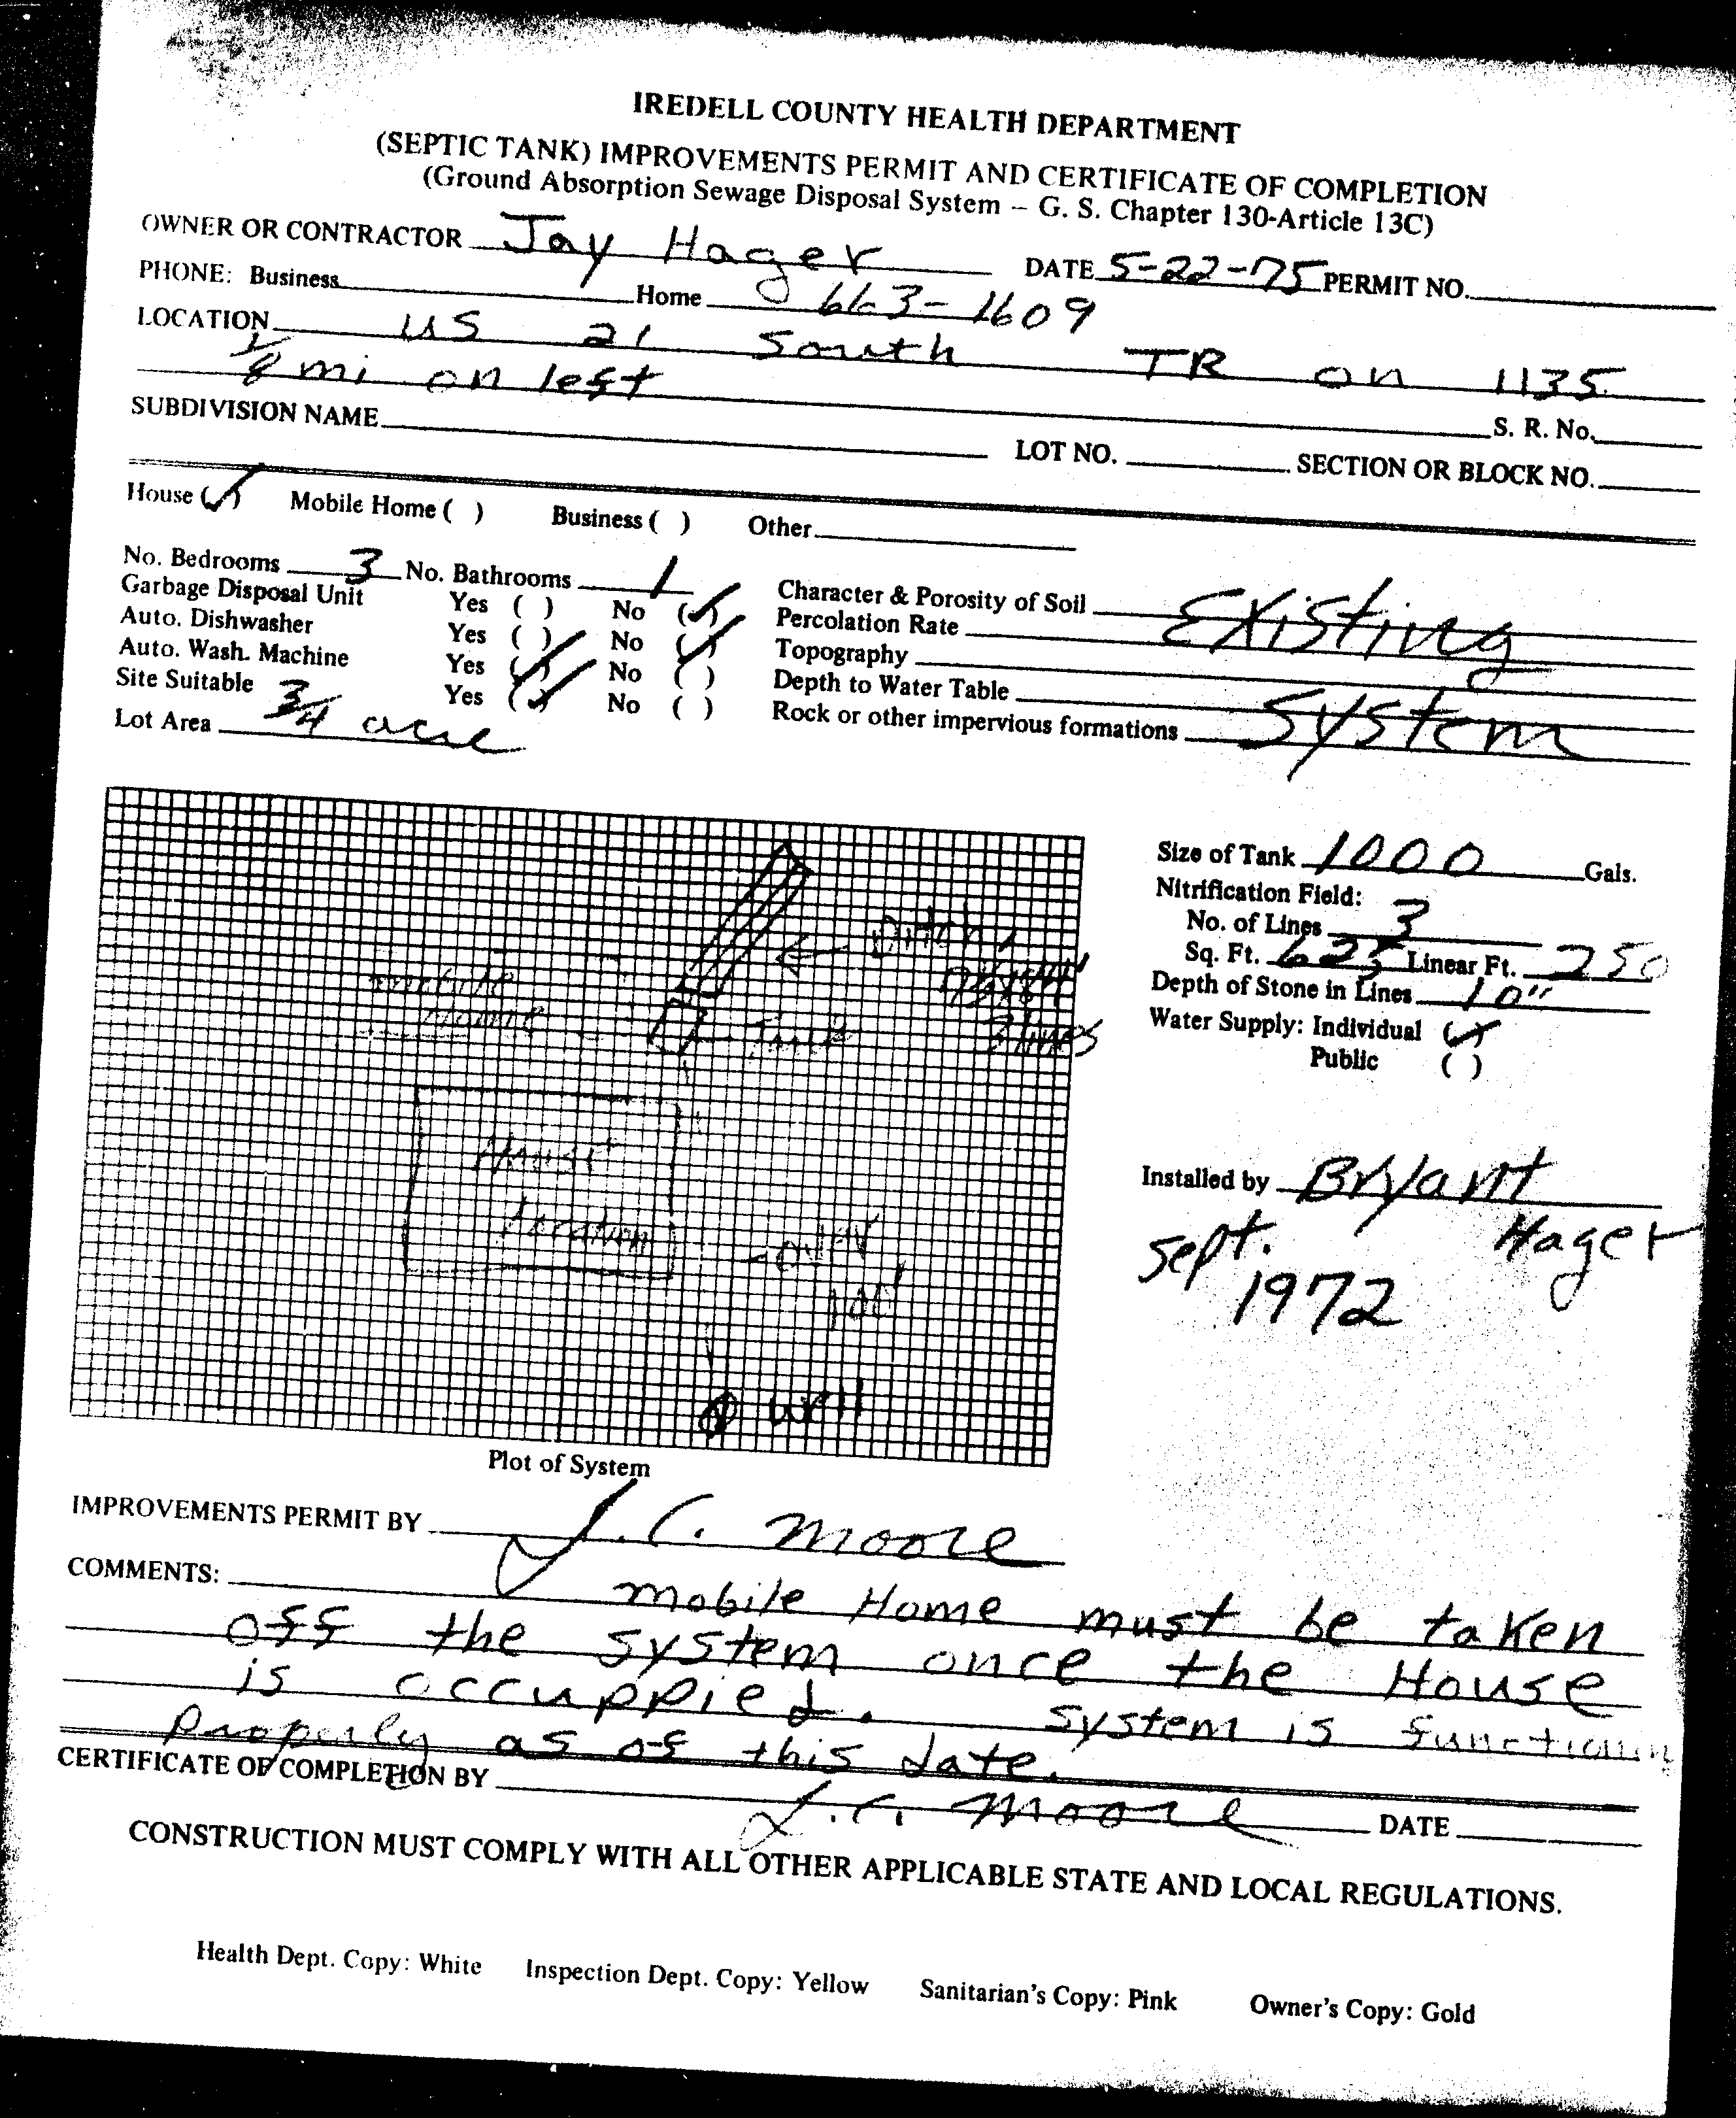 IREDELL COUNTY HEALTH DEPARTMENT
(SEPTIC TANK) IMPROVEMENTS PERMIT AND CERTIFICATE OF COMPLETION
(Ground Absorption Sewage Disposal System – G. S. Chapter 130-Article 13C)
OWNER OR CONTRACTOR Jay Hager DATE 5-22-75 PERMIT NO.
PHONE: Business Home 663-1609
LOCATION US 21 South TR on 1135
1/8 mi on left S. R. No.
SUBDIVISION NAME LOT NO. SECTION OR BLOCK NO.
House (✓) Mobile Home ( ) Business ( ) Other
No. Bedrooms 3 No. Bathrooms 1
Garbage Disposal Unit Yes ( ) No (✓)
Auto. Dishwasher Yes ( ) No (✓)
Auto. Wash. Machine Yes (✓) No ( )
Site Suitable Yes (✓) No ( )
Lot Area 3/4 acre
Character & Porosity of Soil Existing
Percolation Rate
Topography
Depth to Water Table
Rock or other impervious formations System
mobile
Home
Ditch
3 lines
Tank
House
Location
over
100'
well
Plot of System
Size of Tank 1000 Gals.
Nitrification Field:
No. of Lines 3
Sq. Ft. 625 Linear Ft. 250
Depth of Stone in Lines 10"
Water Supply: Individual (✓)
Public ( )
Installed by Bryant
Hager
Sept.
1972
IMPROVEMENTS PERMIT BY J. C. Moore
COMMENTS: mobile Home must be taken
off the system once the House
is occuppied. System is function
properly as of this date.
CERTIFICATE OF COMPLETION BY J. C. Moore DATE
CONSTRUCTION MUST COMPLY WITH ALL OTHER APPLICABLE STATE AND LOCAL REGULATIONS.
Health Dept. Copy: White Inspection Dept. Copy: Yellow Sanitarian's Copy: Pink Owner's Copy: Gold